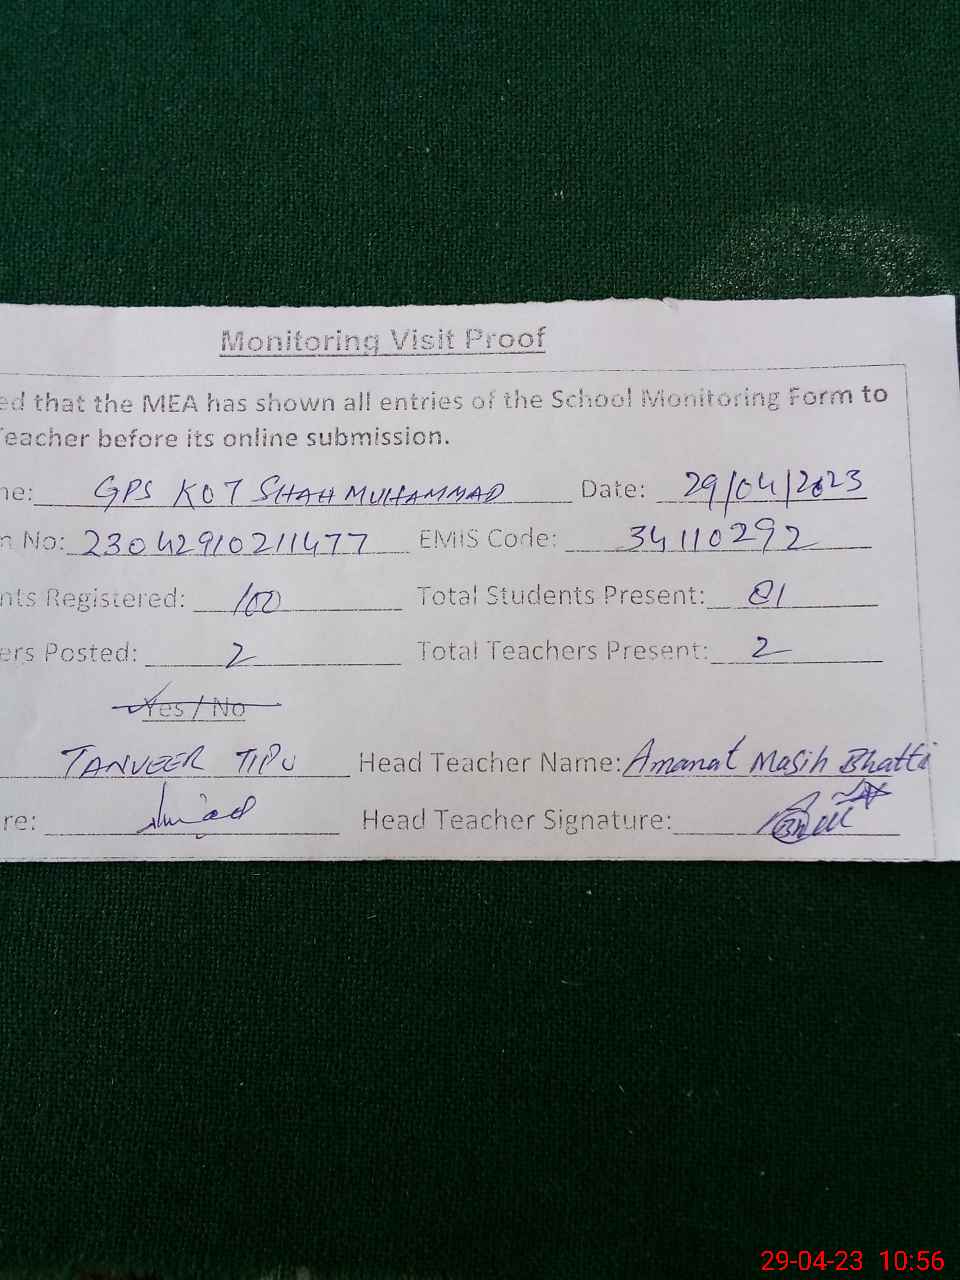 Monitoring Visit Proof
ed that the MEA has shown all entries of the School Monitoring Form to
eacher before its online submission.
ne: GPS KOT SHAH MUHAMMAD Date: 29/04/2023
n No: 23042910211477 EMIS Code: 34110292
nts Registered: 100 Total Students Present: 81
ers Posted: 2 Total Teachers Present: 2
Yes / No
TANVEER TIPU Head Teacher Name: Amanat Masih Bhatti
re: Head Teacher Signature:
29-04-23 10:56